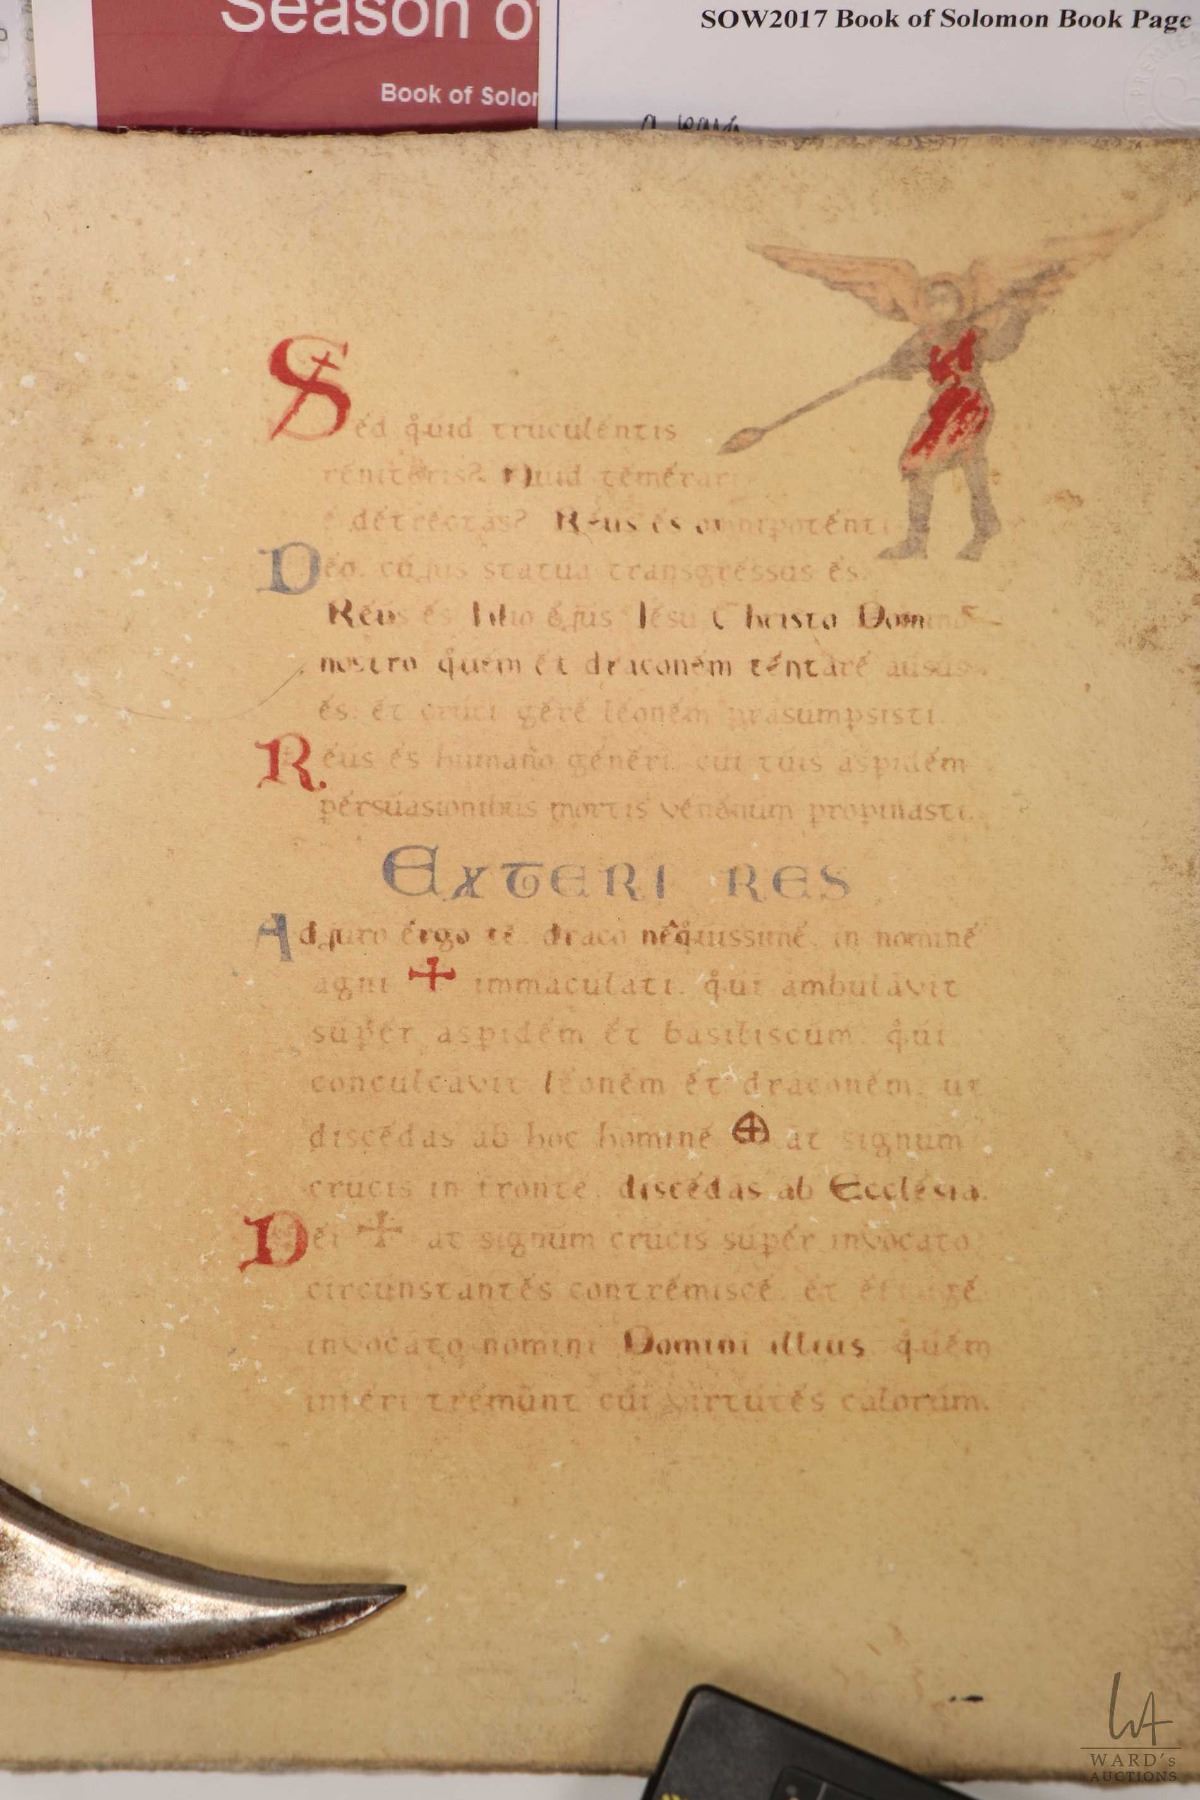 Season o
Book of Solo
SOW2017 Book of Solomon Book Page
Sed quid truculentis
reniteris? Quid temerari
e detrectas? Reus es omnipotenti
Deo. cujus statua transgressus es.
Reus es Filio ejus Iesu Christo Domino
nostro quem et draconem tentare ausus
es. et cruci gere leonem prasumpsisti.
Reus es humano generi. cui tuis aspidem
persuasionibus mortis venenum propinasti.
EXTERI RES
Adjuro ergo te. draco nequissime. in nomine
agni ✝ immaculati. qui ambulavit
super aspidem et basiliscum. qui
conculcavit leonem et draconem. ut
discedas ab hoc homine ⊕ at signum
crucis in fronte. discedas ab Ecclesia.
Dei ✝ at signum crucis super invocato
circunstantes contremisce. et effuge
invocato nomini Domini illius. quem
inferi tremunt cui virtutes calorum.
WA
WARD's
AUCTIONS